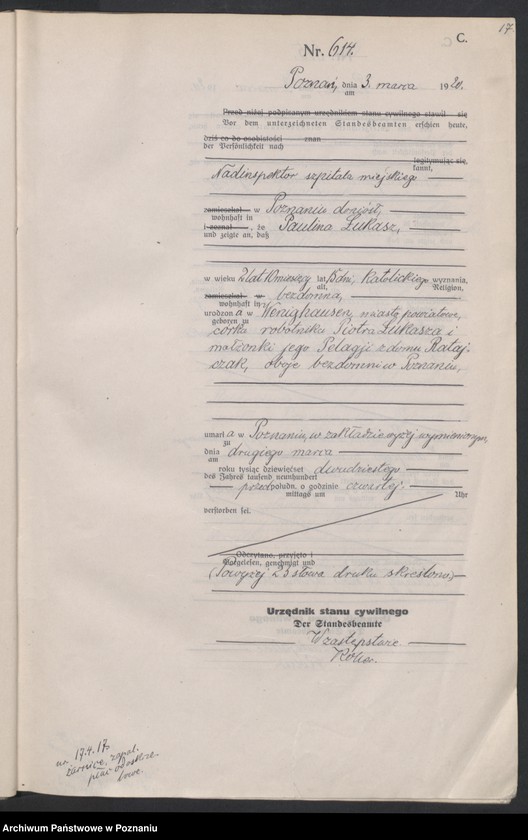 17
C.
Nr. 614.
Poznań, dnia 3. marca 1920.
am
Przed niżej podpisanym urzędnikiem stanu cywilnego stawił się
Vor dem unterzeichneten Standesbeamten erschien heute,
dziś co do osobistości znan
der Persönlichkeit nach
legitymując się,
kannt,
Nadinspektor szpitala miejskiego
zamieszkał w Poznaniu doniósł,
wohnhaft in
i zeznał, że Paulina Łukasz,
und zeigte an, daß
w wieku 2 lat 10 miesięcy lat 15 dni, katolickiego wyznania,
alt, Religion,
zamieszkał w bezdomna,
wohnhaft in
urodzona w Wenighausen, miasto powiatowe,
geboren zu
córka robotnika Piotra Łukasza i
małżonki jego Pelagji z domu Rataj-
czak, oboje bezdomni w Poznaniu,
umarła w Poznaniu, w zakładzie wyżej wymienionym,
zu
dnia drugiego marca
am
roku tysiąc dziewięćset dwudziestego
des Jahres tausend neunhundert
przed połudn. o godzinie czwartej.
mittags um Uhr
verstorben sei.
Odczytano, przyjęto i
Vorgelesen, genehmigt und
(Powyżej 23 słowa druku skreślono)
Urzędnik stanu cywilnego
Der Standesbeamte
W zastępstwie
ur. 17.4.17.
zapal.
płuc
Archiwum Państwowe w Poznaniu